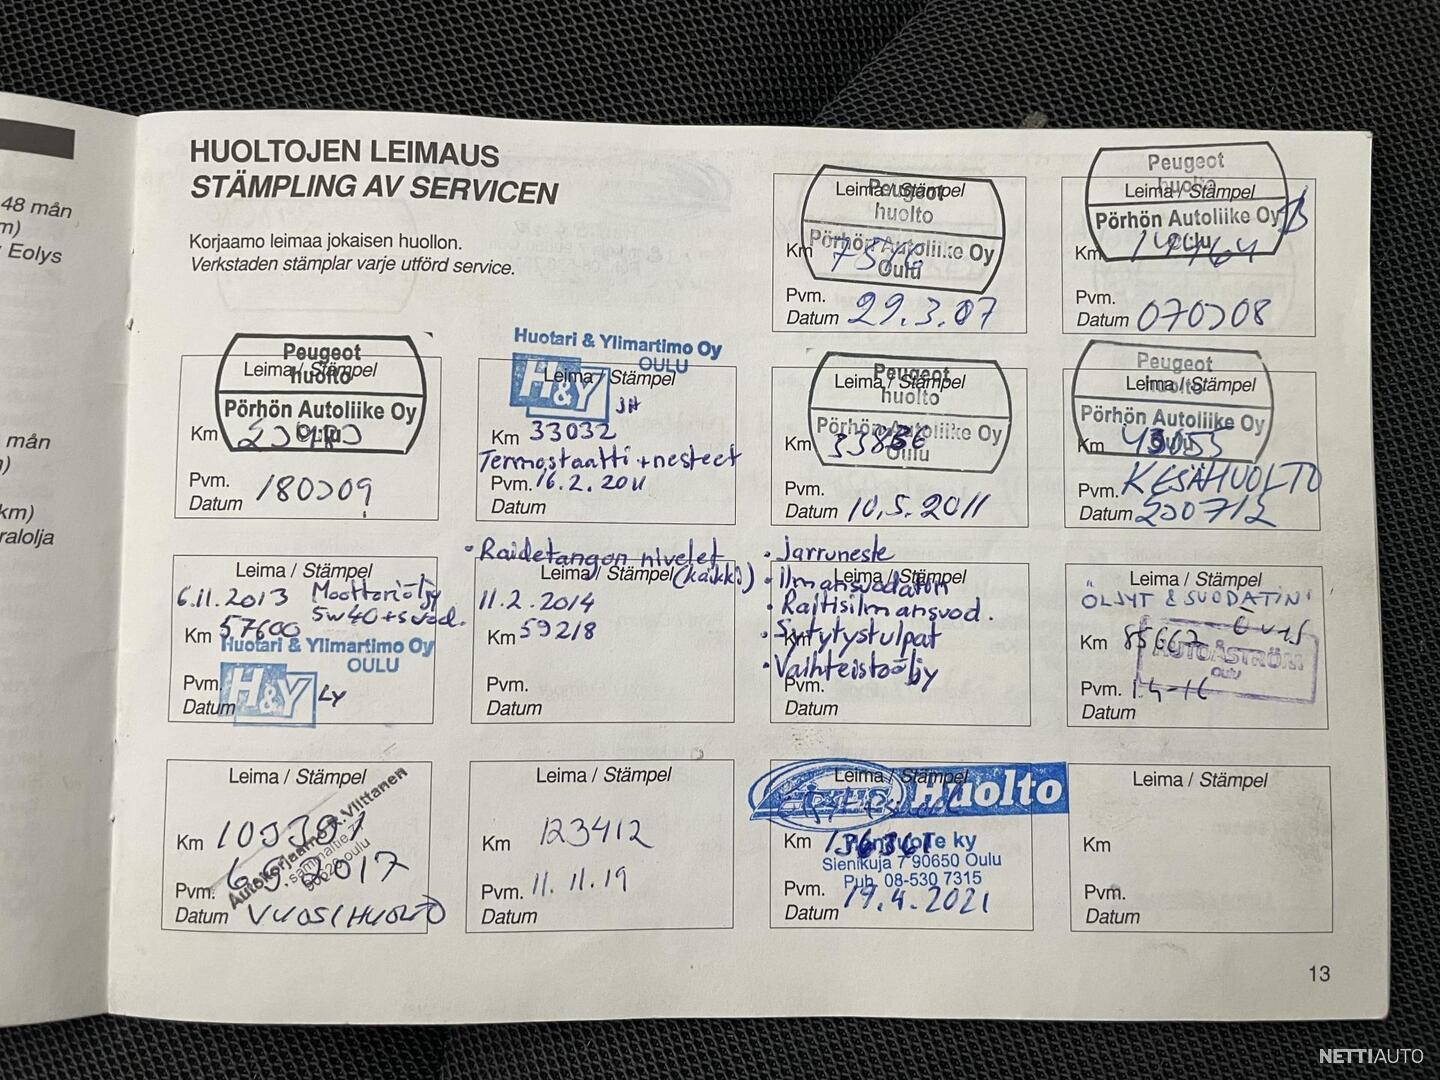 48 mån
m)
Eolys
mån
)
km)
ralolja
HUOLTOJEN LEIMAUS
STÄMPLING AV SERVICEN
Korjaamo leimaa jokaisen huollon.
Verkstaden stämplar varje utförd service.
Peugeot
huolto
Leima / Stämpel
Pörhön Autoliike Oy
Oulu
Km
Pvm.
Datum 29.3.07
Peugeot
huolto
Leima / Stämpel
Pörhön Autoliike Oy
Oulu
Km
Pvm.
Datum 070208
Peugeot
huolto
Leima / Stämpel
Pörhön Autoliike Oy
Oulu
Km
Pvm.
Datum 180209
Huotari & Ylimartimo Oy
OULU
H&Y
Leima / Stämpel
Km 33032
Termostaatti + nesteet
Pvm. 16.2.2011
Datum
Peugeot
huolto
Leima / Stämpel
Pörhön Autoliike Oy
Oulu
Km
Pvm.
Datum 10.5.2011
Peugeot
huolto
Leima / Stämpel
Pörhön Autoliike Oy
Oulu
Km
KESÄHUOLTO
Pvm.
Datum 200712
Leima / Stämpel
6.11.2013 Moottoriöljy
5w40 + suod.
Km 57600
Huotari & Ylimartimo Oy
OULU
Pvm.
H&Y
LY
Datum
• Raidetangon nivelet
(kaikki)
Leima / Stämpel
11.2.2014
Km 59218
Pvm.
Datum
• Jarruneste
• ilmansuodatin
Leima / Stämpel
• Raitisilmansuod.
• Sytytystulpat
Km
• Vaihteistoöljy
Pvm.
Datum
Leima / Stämpel
ÖLJYT & SUODATIN
Km 85667
AUTOÅSTRÖM
OULU
Pvm.
Datum
Leima / Stämpel
Km
Autokorjaamo R. Ylittanen
90620 oulu
Pvm.
Datum VUOSIHUOLTO
Leima / Stämpel
Km 123412
Pvm. 11.11.19
Datum
Leima / Stämpel
Huolto
Km 136361
Sienikuja 7 90650 Oulu
Puh. 08-530 7315
Pvm.
Datum 19.4.2021
Leima / Stämpel
Km
Pvm.
Datum
13
NETTIAUTO